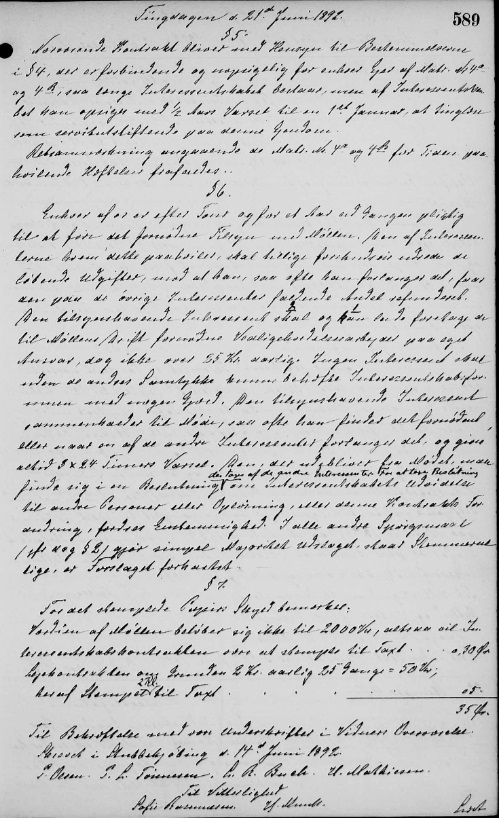 Tingdagen d. 21de Juni 1892.
589
§ 5.
Nærværende Kontrakt bliver med Hensyn til Bestemmelserne
i § 4, der er forbindende og uopsigelig for enhver Ejer af Matr. No 4a
og 4b, saa længe Interessentskabet bestaar, men af Interessentska-
bet kan opsiges med ½ Aars Varsel til en 1ste Januar, at tinglæse
som servitutstiftende paa denne Ejendom.
Retsanmærkning angaaende de Matr. No 4a og 4b for Tiden paa-
hvilende Hæftelser frafaldes.
§ 6.
Enhver af os er efter Tour og for et Aar ad Gangen pligtig
til at føre det fornødne Tilsyn med Møllen. Den af Interessen-
terne hvem dette paahviler, skal tillige forskudsvis udrede de
løbende Udgifter, mod at han, saa ofte han forlanger det, faar
den paa de øvrige Interessenter faldende Andel refunderet.
Den tilsynshavende Interessent skal og kan lade foretage de
til Møllens Drift fornødne Vedligeholdelsesarbejder paa eget
Ansvar, dog ikke over 25 Kr. aarlig. Ingen Interessent skal
uden de andres Samtykke kunne behæfte Interessentskabsfor-
muen med nogen Gjæld. Den tilsynshavende Interessent
sammenkalder til Møde, saa ofte han finder det fornødent,
eller naar en af de andre Interessenter forlanger det, og giver
altid 3 x 24 Timers Varsel. Den, der udebliver fra Mødet, maa
finde sig i den af de andre Interessenter tagne Beslutning.
om Interessentskabets Udvidelse
til andre Personer eller Opløsning, eller denne Kontrakts For-
andring, fordres Enstemmighed. I alle andre Spørgsmaal
(jfr dog § 2) gjør simpel Majoritet Udslaget, staar Stemmerne
lige, er Forslaget forkastet.
§ 7.
For det stemplede Papirs Skyld bemærkes:
Værdien af Møllen beløber sig ikke til 2000 Kr, altsaa vil In-
teressentskabskontrakten være at stemple til Taxt 0,30 Ør
Lejekontrakten om Grunden 2 Kr. aarlig 25 Gange = 50 Kr,
heraf Stempel til Taxt 05
35 Ør.
Til Bekræftelse med vor Underskrifter i Vidners Overværelse.
Skuset i Stubbekjøbing d. 14de Juni 1892.
P. Olsen. P. L. Tønnesen. C. R. Buch. H. Mathiesen.
Til Vitterlighed
Sofie Rasmussen. Hj. Munk.